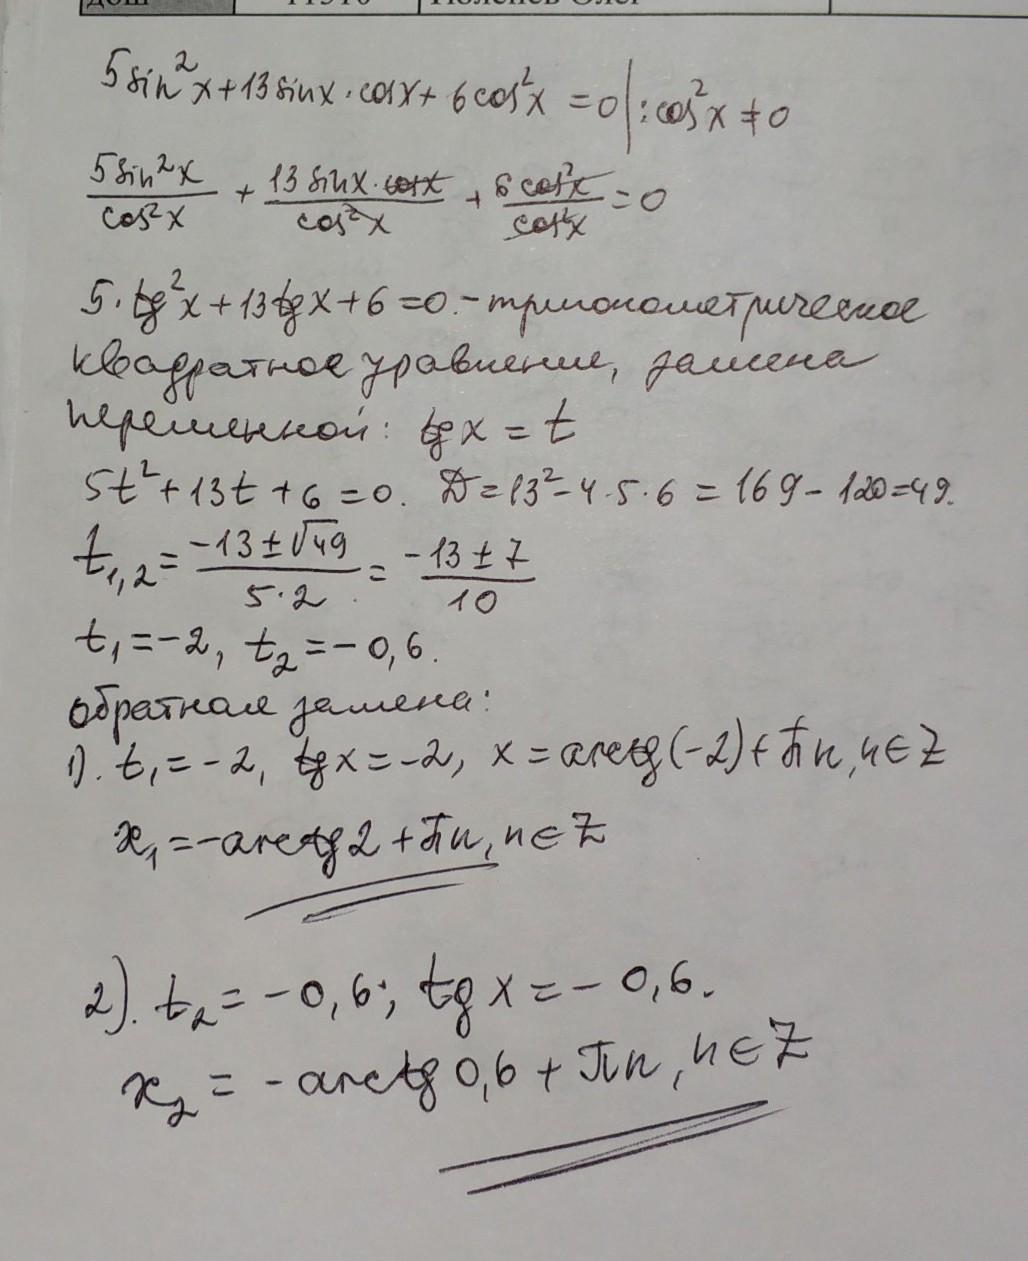 5sin²x+13sinx·cosx+6cos²x=0|:cos²x≠0
5sin²x/cos²x + 13sinx·cosx/cos²x + 6cos²x/cos²x =0
5·tg²x+13tgx+6=0.-тригонометрическое
квадратное уравнение, замена
переменной: tgx=t
5t²+13t+6=0. D=13²-4·5·6=169-120=49.
t₁,₂= (-13±√49)/(5·2) = (-13±7)/10
t₁=-2, t₂=-0,6.
обратная замена:
1). t₁=-2, tgx=-2, x=arctg(-2)+πn, n∈Z
x₁=-arctg2+πn, n∈Z
2). t₂=-0,6; tgx=-0,6.
x₂=-arctg0,6+πn, n∈Z